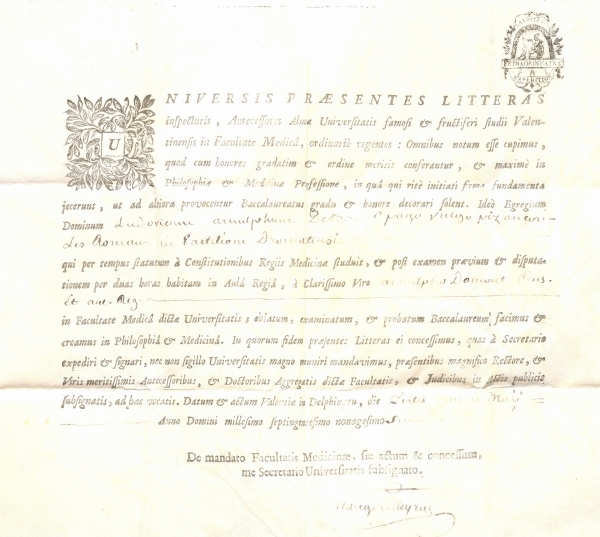 UNIVERSIS PRÆSENTES LITTERAS
inspecturis, Antecessores Almæ Universitatis famosi & fructiferi studii Valen-
tinensis in Facultate Medicâ, ordinariè regentes : Omnibus notum esse cupimus,
quod cum honores gradatim & ordine meritis conferantur, & maximè in
Philosophiæ & Medicinæ Professione, in quâ qui ritè initiati firma fundamenta
jecerunt, ut ad altiora provocentur Baccalaureatus gradu & honore decorari solent. Ideò Egregium
Dominum Ludovicum arnulphum
Romans in Partitione
qui per tempus statutum à Constitutionibus Regiis Medicinæ studuit, & post examen prævium & disputa-
tionem per duas horas habitam in Aulâ Regiâ, à Clarissimo Viro arnulpho Dumont
Et ant. Reg.
in Facultate Medicâ dictæ Universitatis ; oblatum, examinatum, & probatum Baccalaureum facimus &
creamus in Philosophiâ & Medicinâ. In quorum fidem præsentes Litteras ei concessimus, quas à Secretario
expediri & signari, nec non sigillo Universitatis magno muniri mandavimus, præsentibus magnifico Rectore, &
Viris meritissimis Antecessoribus, & Doctoribus Aggregatis dictæ Facultatis, & Judicibus in Actis publicis
subsignatis, ad hæc vocatis. Datum & actum Valentiæ in Delphinatu, die
Anno Domini millesimo septingentesimo nonagesimo
De mandato Facultatis Medicinæ, sic actum & concessum,
me Secretario Universitatis subsignato.